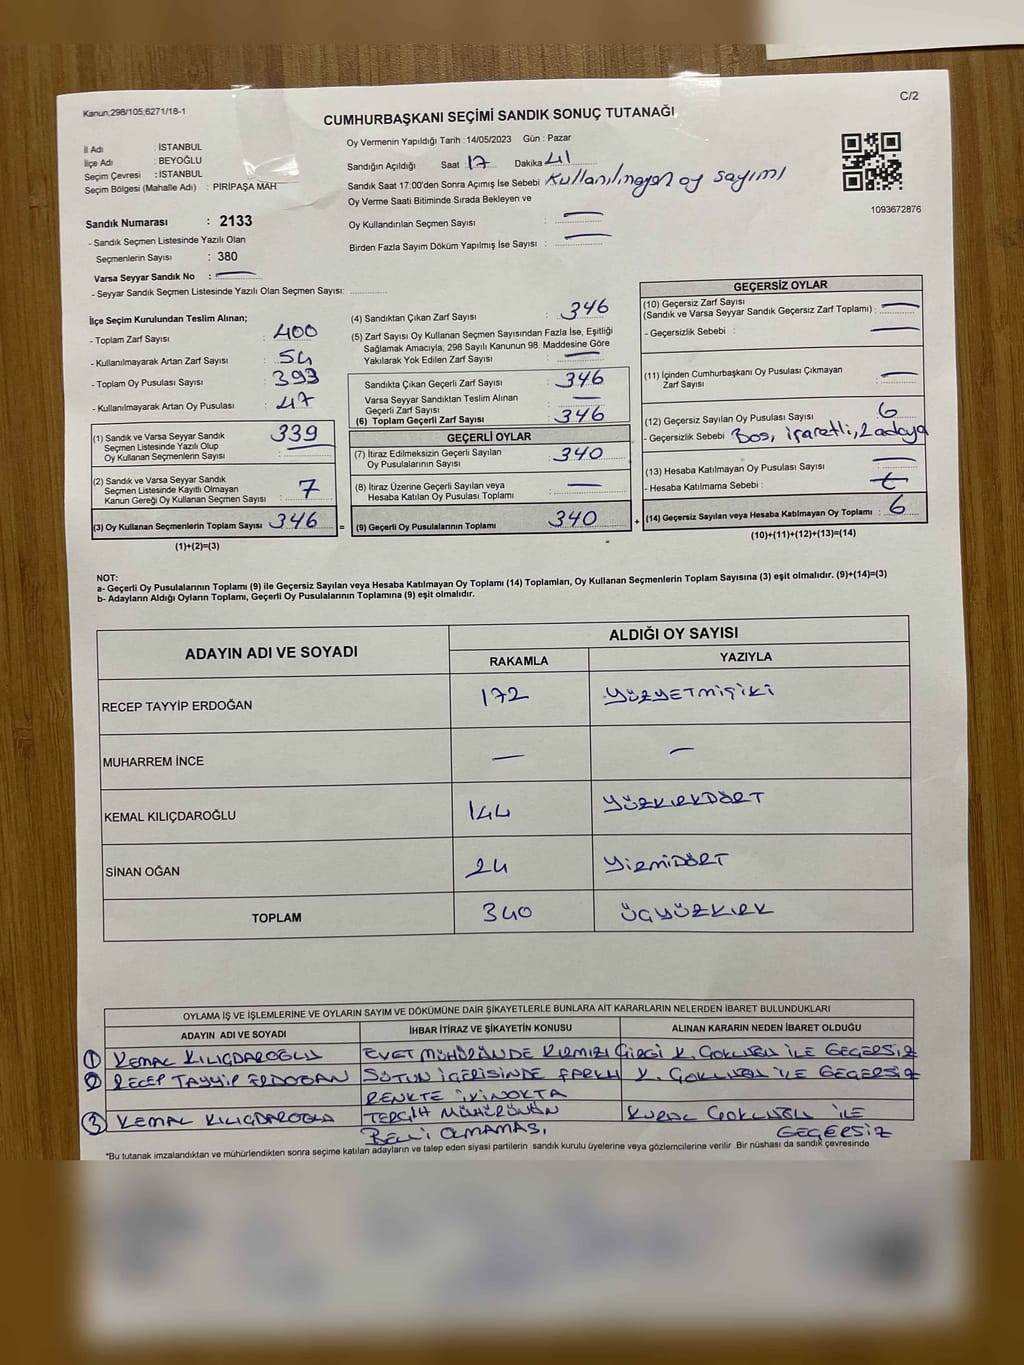 Kanun;298/105;6271/18-1
C/2
CUMHURBAŞKANI SEÇİMİ SANDIK SONUÇ TUTANAĞI
İl Adı : İSTANBUL
İlçe Adı : BEYOĞLU
Seçim Çevresi : İSTANBUL
Seçim Bölgesi (Mahalle Adı) : PİRİPAŞA MAH
Sandık Numarası : 2133
- Sandık Seçmen Listesinde Yazılı Olan
Seçmenlerin Sayısı : 380
Varsa Seyyar Sandık No : —
- Seyyar Sandık Seçmen Listesinde Yazılı Olan Seçmen Sayısı:
Oy Vermenin Yapıldığı Tarih :14/05/2023 Gün : Pazar
Sandığın Açıldığı Saat :17 Dakika :41
Sandık Saat 17:00'den Sonra Açımış İse Sebebi Kullanılmayan oy sayımı
Oy Verme Saati Bitiminde Sırada Bekleyen ve
Oy Kullandırılan Seçmen Sayısı : —
Birden Fazla Sayım Döküm Yapılmış İse Sayısı : —
1093672876
İlçe Seçim Kurulundan Teslim Alınan;
- Toplam Zarf Sayısı : 400
- Kullanılmayarak Artan Zarf Sayısı : 54
- Toplam Oy Pusulası Sayısı : 393
- Kullanılmayarak Artan Oy Pusulası : 47
(1) Sandık ve Varsa Seyyar Sandık
Seçmen Listesinde Yazılı Olup
Oy Kullanan Seçmenlerin Sayısı : 339
(2) Sandık ve Varsa Seyyar Sandık
Seçmen Listesinde Kayıtlı Olmayan
Kanun Gereği Oy Kullanan Seçmen Sayısı : 7
(3) Oy Kullanan Seçmenlerin Toplam Sayısı : 346 =
(1)+(2)=(3)
(4) Sandıktan Çıkan Zarf Sayısı : 346
(5) Zarf Sayısı Oy Kullanan Seçmen Sayısından Fazla İse, Eşitliği
Sağlamak Amacıyla, 298 Sayılı Kanunun 98. Maddesine Göre
Yakılarak Yok Edilen Zarf Sayısı : —
Sandıkta Çıkan Geçerli Zarf Sayısı : 346
Varsa Seyyar Sandıktan Teslim Alınan
Geçerli Zarf Sayısı : —
(6) Toplam Geçerli Zarf Sayısı : 346
GEÇERLİ OYLAR
(7) İtiraz Edilmeksizin Geçerli Sayılan
Oy Pusulalarının Sayısı : 340
(8) İtiraz Üzerine Geçerli Sayılan veya
Hesaba Katılan Oy Pusulası Toplamı : —
(9) Geçerli Oy Pusulalarının Toplamı : 340 +
GEÇERSİZ OYLAR
(10) Geçersiz Zarf Sayısı
(Sandık ve Varsa Seyyar Sandık Geçersiz Zarf Toplamı) : —
- Geçersizlik Sebebi : —
(11) İçinden Cumhurbaşkanı Oy Pusulası Çıkmayan
Zarf Sayısı : —
(12) Geçersiz Sayılan Oy Pusulası Sayısı : 6
- Geçersizlik Sebebi : Boş, işaretli, 2 adaya
(13) Hesaba Katılmayan Oy Pusulası Sayısı : —
- Hesaba Katılmama Sebebi :
(14) Geçersiz Sayılan veya Hesaba Katılmayan Oy Toplamı : 6
(10)+(11)+(12)+(13)=(14)
NOT:
a- Geçerli Oy Pusulalarının Toplamı (9) ile Geçersiz Sayılan veya Hesaba Katılmayan Oy Toplamı (14) Toplamları, Oy Kullanan Seçmenlerin Toplam Sayısına (3) eşit olmalıdır. (9)+(14)=(3)
b- Adayların Aldığı Oyların Toplamı, Geçerli Oy Pusulalarının Toplamına (9) eşit olmalıdır.
ADAYIN ADI VE SOYADI
ALDIĞI OY SAYISI
RAKAMLA YAZIYLA
RECEP TAYYİP ERDOĞAN 172 YÜZYETMİŞİKİ
MUHARREM İNCE — —
KEMAL KILIÇDAROĞLU 144 YÜZKIRKDÖRT
SİNAN OĞAN 24 YİRMİDÖRT
TOPLAM 340 ÜÇYÜZKIRK
OYLAMA İŞ VE İŞLEMLERİNE VE OYLARIN SAYIM VE DÖKÜMÜNE DAİR ŞİKAYETLERLE BUNLARA AİT KARARLARIN NELERDEN İBARET BULUNDUKLARI
ADAYIN ADI VE SOYADI İHBAR İTİRAZ VE ŞİKAYETİN KONUSU ALINAN KARARIN NEDEN İBARET OLDUĞU
1 KEMAL KILIÇDAROĞLU EVET MÜHÜRÜNDE KIRMIZI ÇİZGİ K. ÇOKLUĞU İLE GEÇERSİZ
2 RECEP TAYYİP ERDOĞAN SÜTUN İÇERİSİNDE FARKLI K. ÇOKLUĞU İLE GEÇERSİZ
RENKTE İKİ NOKTA
3 KEMAL KILIÇDAROĞLU TERCİH MÜHÜRÜNÜN KURUL ÇOKLUĞU İLE
BELLİ OLMAMASI, GEÇERSİZ
*Bu tutanak imzalandıktan ve mühürlendikten sonra seçime katılan adayların ve talep eden siyasi partilerin sandık kurulu üyelerine veya gözlemcilerine verilir .Bir nüshası da sandık çevresinde